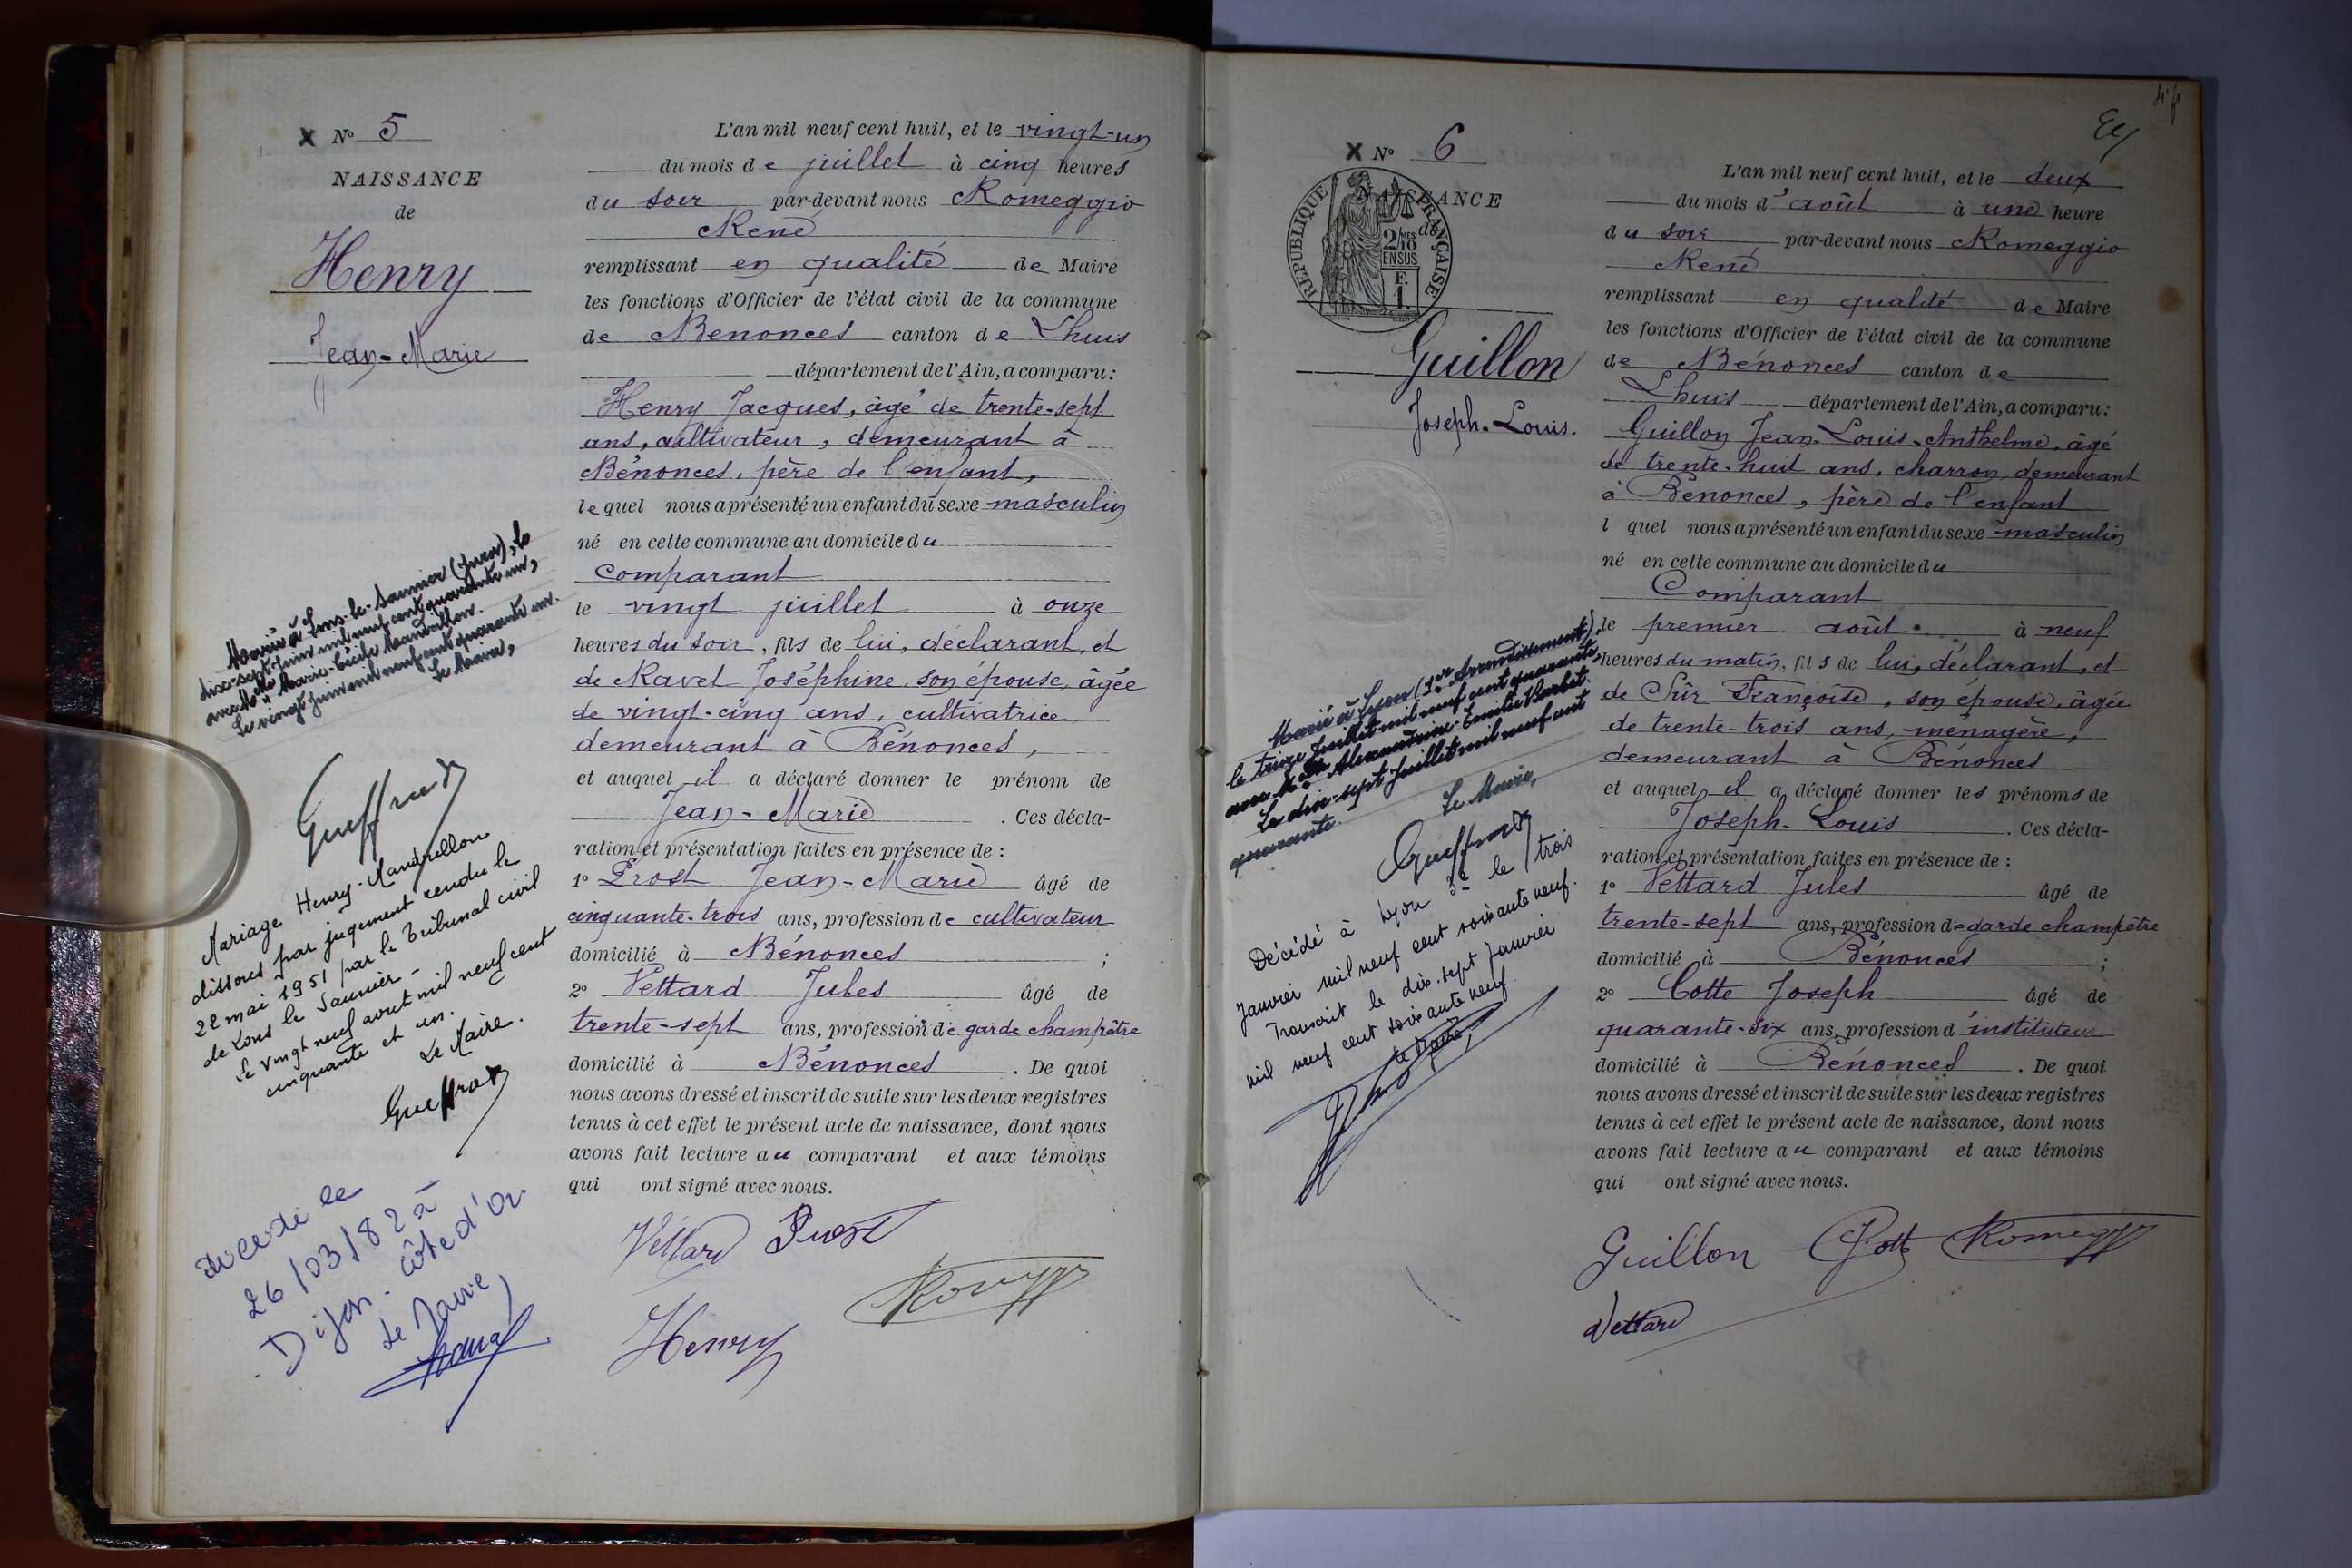 x N° 5
NAISSANCE
de
Henry
Jean-Marie
Marié à Lons-le-Saunier (Jura), le
dix-sept Juin mil neuf cent quarante un,
avec Marie-Cécile Mandrillon.
Le vingt Juin mil neuf cent quarante un.
Le Maire,
Mariage Henry-Mandrillon
dissous par jugement rendu le
22 mai 1951 par le Tribunal civil
de Lons le Saunier -
Le vingt neuf aout mil neuf cent
cinquante et un.
Le Maire.
décédé le
26/03/82 à
Dijon. Côte d'Or.
Le Maire,
L'an mil neuf cent huit, et le vingt-un
du mois de juillet à cinq heures
du soir par-devant nous Romeggio
René
remplissant en qualité de Maire
les fonctions d'Officier de l'état civil de la commune
de Benonces canton de Lhuis
département de l'Ain, a comparu:
Henry Jacques, âgé de trente-sept
ans, cultivateur, demeurant à
Bénonces, père de l'enfant,
lequel nous a présenté un enfant du sexe masculin
né en cette commune au domicile du
comparant
le vingt juillet à onze
heures du soir, fils de lui, déclarant, et
de Ravet Joséphine, son épouse, âgée
de vingt-cinq ans, cultivatrice
demeurant à Bénonces,
et auquel il a déclaré donner le prénom de
Jean-Marie. Ces décla-
ration et présentation faites en présence de :
1° Prost Jean-Marie âgé de
cinquante-trois ans, profession de cultivateur
domicilié à Bénonces ;
2° Vettard Jules âgé de
trente-sept ans, profession de garde champêtre
domicilié à Bénonces. De quoi
nous avons dressé et inscrit de suite sur les deux registres
tenus à cet effet le présent acte de naissance, dont nous
avons fait lecture au comparant et aux témoins
qui ont signé avec nous.
Vettard Prost
Henry
x N° 6
NAISSANCE
de
RÉPUBLIQUE FRANÇAISE
2/10 MES
EN SUS
F.
1.
Guillon
Joseph-Louis.
Marié à Lyon (1er Arrondissement),
le treize Juillet mil neuf cent quarante,
avec Alexandrine-Emilie Barbet.
Le dix-sept Juillet mil neuf cent
quarante.
Le Maire,
Décédé à Lyon 3e le trois
Janvier mil neuf cent soixante neuf.
Transcrit le dix-sept janvier
mil neuf cent soixante neuf
Le Maire,
L'an mil neuf cent huit, et le deux
du mois d'août à une heure
du soir par-devant nous Romeggio
René
remplissant en qualité de Maire
les fonctions d'Officier de l'état civil de la commune
de Bénonces canton de
Lhuis département de l'Ain, a comparu:
Guillon Jean-Louis-Anthelme, âgé
de trente-huit ans, charron demeurant
à Bénonces, père de l'enfant
l quel nous a présenté un enfant du sexe masculin
né en cette commune au domicile du
Comparant
le premier août à neuf
heures du matin, fils de lui, déclarant, et
de Sûr Françoise, son épouse, âgée
de trente-trois ans, ménagère,
demeurant à Bénonces
et auquel il a déclaré donner les prénoms de
Joseph-Louis. Ces décla-
ration et présentation faites en présence de :
1° Vettard Jules âgé de
trente-sept ans, profession de garde champêtre
domicilié à Bénonces ;
2° Cotte Joseph âgé de
quarante-six ans, profession d'instituteur
domicilié à Bénonces. De quoi
nous avons dressé et inscrit de suite sur les deux registres
tenus à cet effet le présent acte de naissance, dont nous
avons fait lecture au comparant et aux témoins
qui ont signé avec nous.
Guillon J. Cotte Romeggio
Vettard